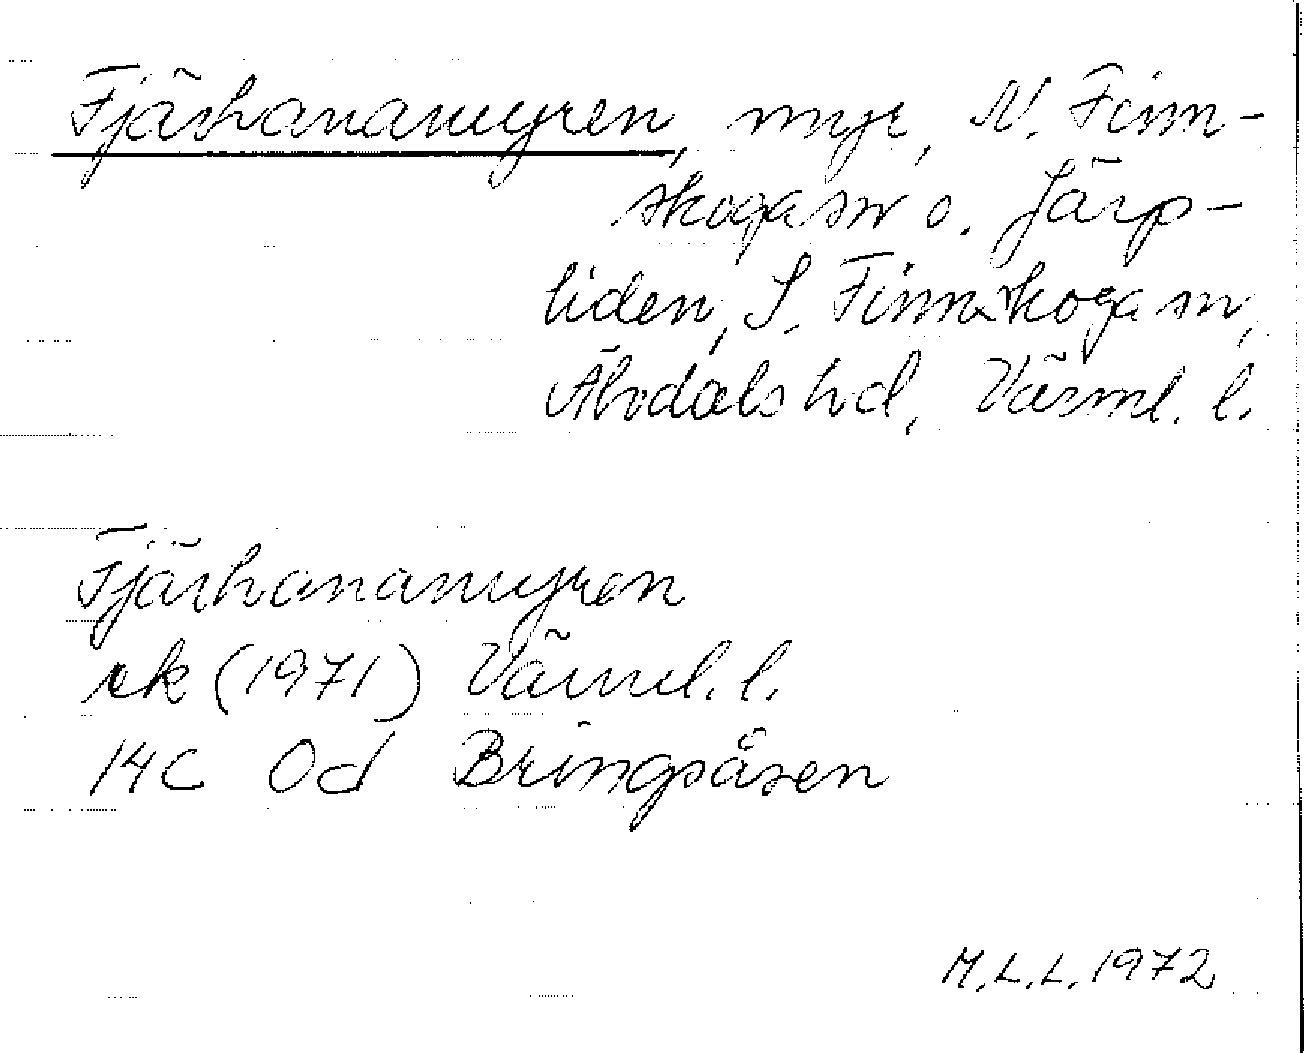 Fjärhanamyren, myr, N. Finn-
skoga sn o. Järp-
liden, S. Finnskoga sn,
Älvdals hd, Värml. l.
Fjärhanamyren
ek (1971) Värml. l.
14C 0d Bringsåsen
M.L.L. 1972